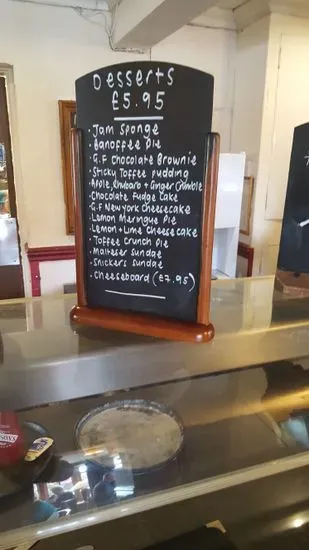 Desserts
£5.95
· Jam Sponge
· Banoffee Pie
· G.F Chocolate Brownie
· Sticky Toffee Pudding
· Apple, Rhubarb + Ginger Crumble
· Chocolate Fudge Cake
· G.F New York Cheesecake
· Lemon Meringue Pie
· Lemon + Lime Cheesecake
· Toffee Crunch Pie
· Malteser Sundae
· Snickers Sundae
· Cheeseboard (£7.95)